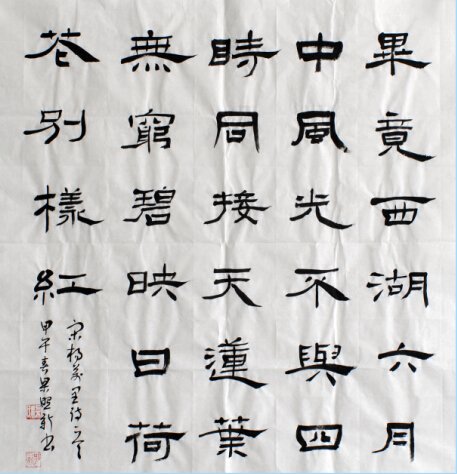 畢竟西湖六月
中風光不與四
時同接天蓮葉
無窮碧映日荷
花別樣紅
宋楊萬里詩
甲午春梁照新書